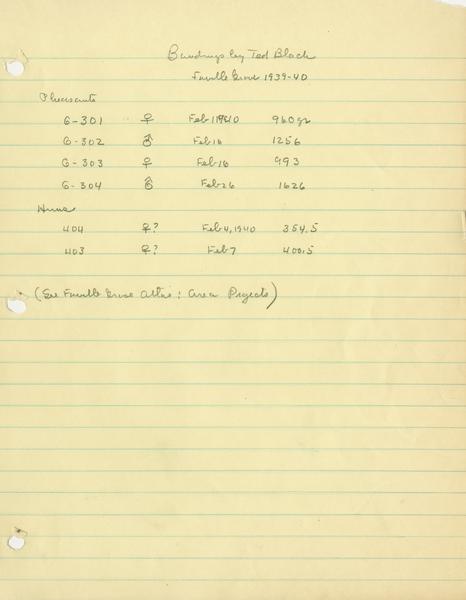 Bandings by Ted Black
Faville Grove 1939-40
Pheasants
G-301 ♀ Feb 11 1940 960 gr
G-302 ♂ Feb 16 1256
G-303 ♀ Feb 16 993
G-304 ♂ Feb 26 1626
Huns
404 ♀? Feb 4, 1940 354.5
403 ♀? Feb 7 400.5
(See Faville Grove Atlas: Area Projects)